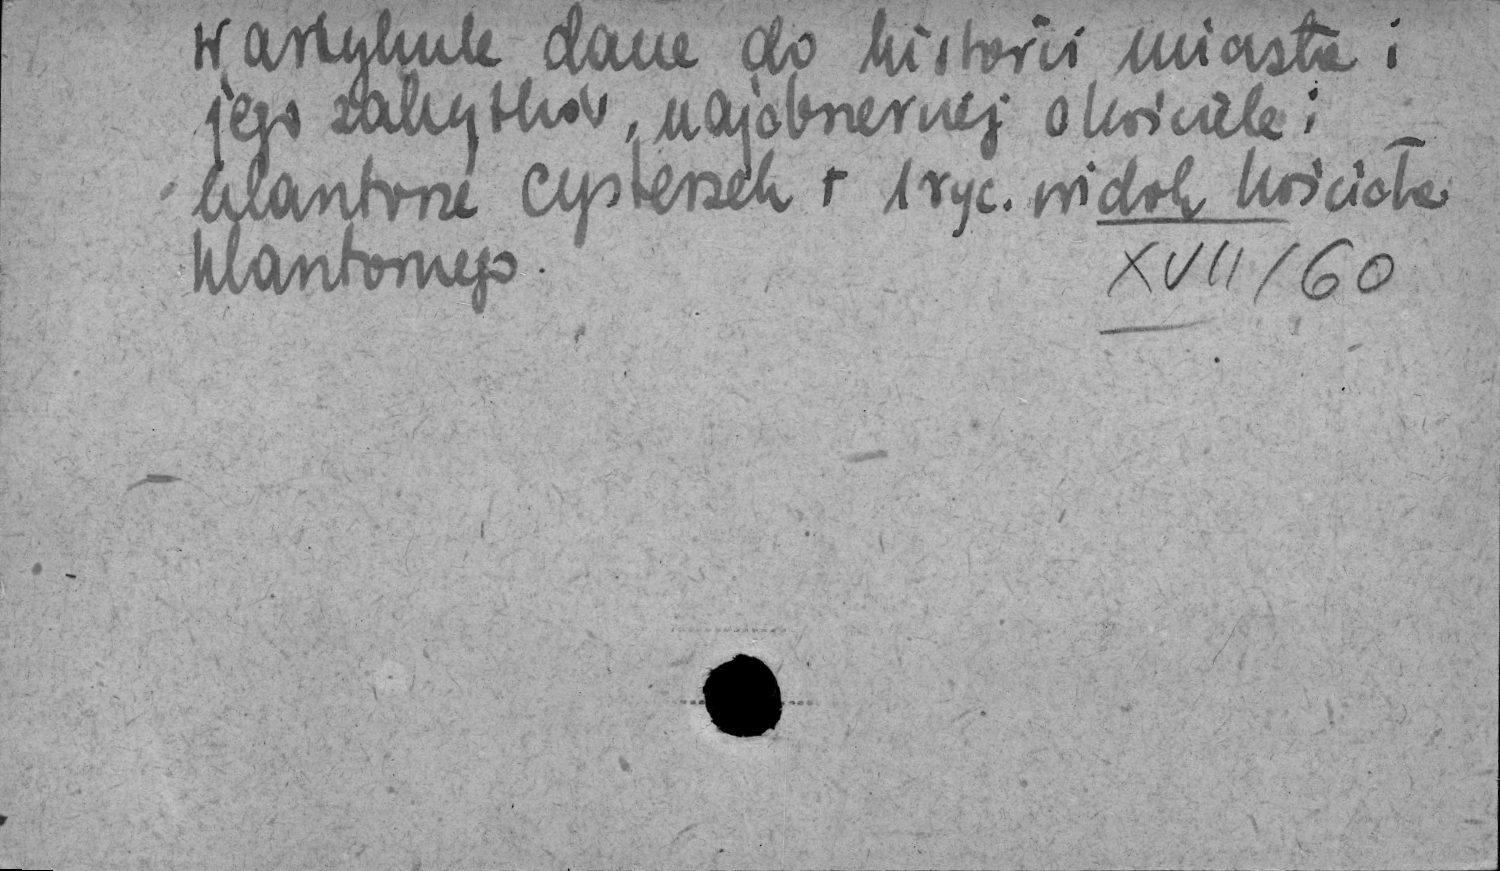 W artykule dane do historii miasta i
jego zabytków, najobszerniej o kościele i
klasztorze cysterek + 1 ryc. widok kościoła
klasztornego.
XVII/60